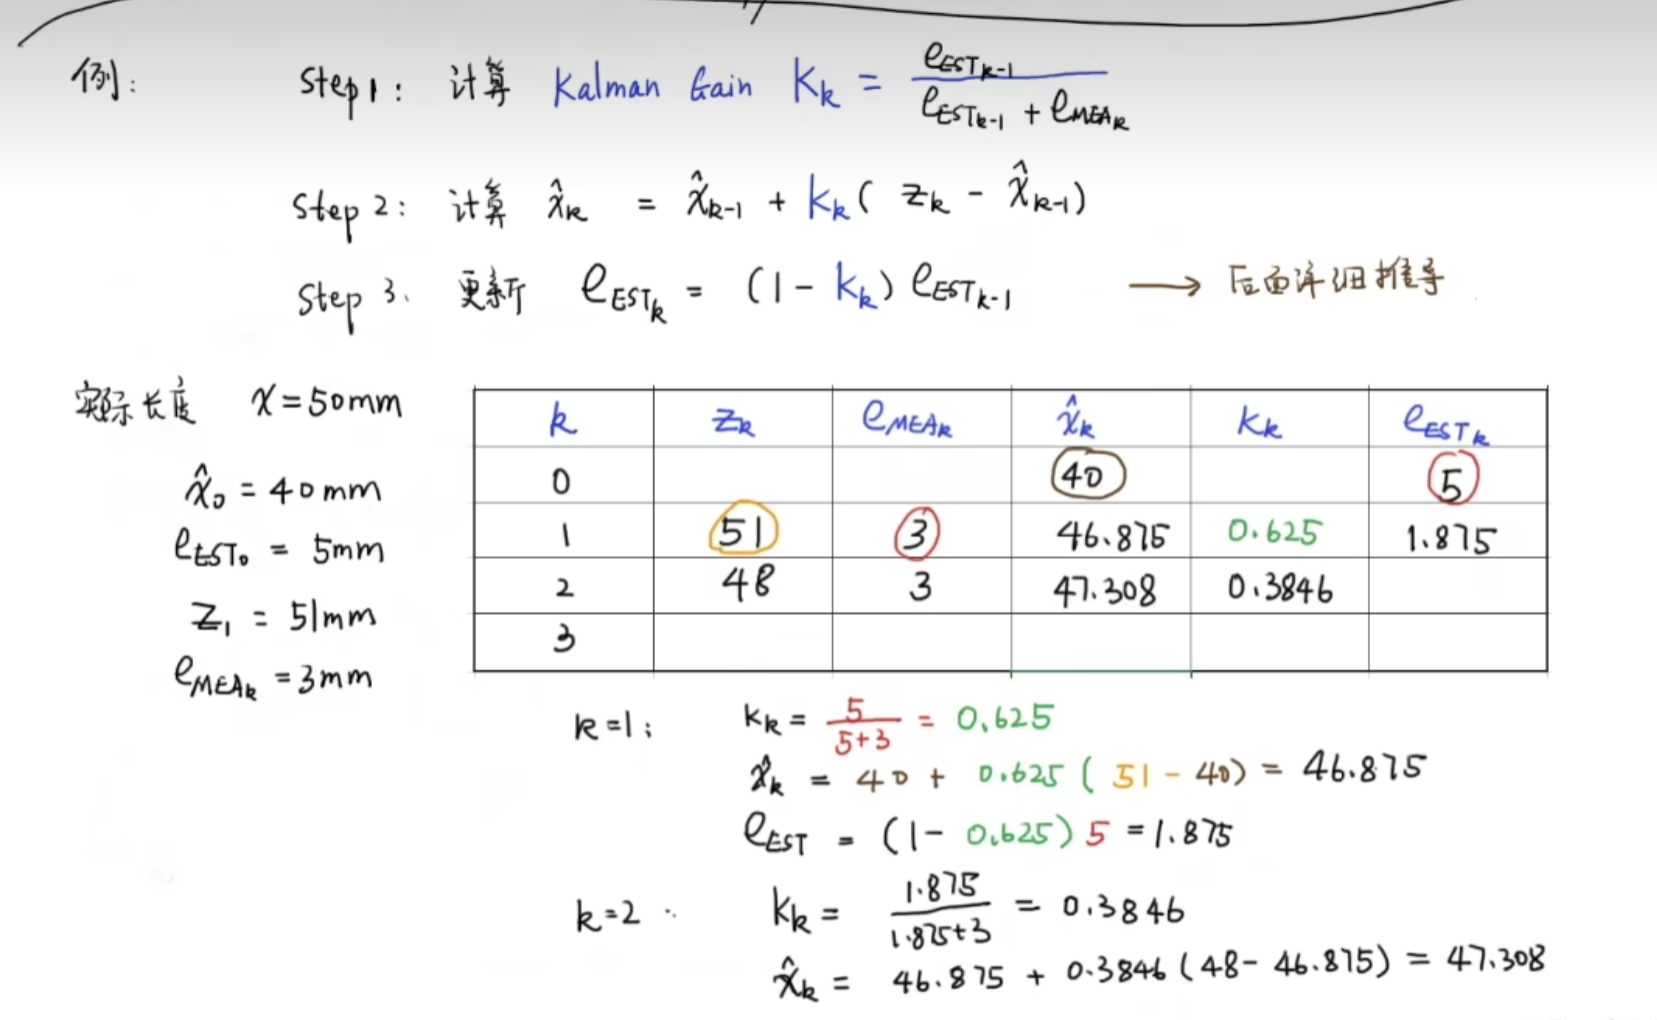 例: Step1: 计算 Kalman Gain Kk = eESTk-1 / eESTk-1 + eMEAk
Step 2: 计算 x̂k = x̂k-1 + Kk( zk - x̂k-1)
Step 3. 更新 eESTk = (1 - Kk) eESTk-1 → 后面详细推导
实际长度 x=50mm
x̂0 = 40mm
eEST0 = 5mm
z1 = 51mm
eMEAk = 3mm
k zk eMEAk x̂k Kk eESTk
0 40 5
1 51 3 46.875 0.625 1.875
2 48 3 47.308 0.3846
3
k=1: Kk = 5 / 5+3 = 0.625
x̂k = 40 + 0.625 ( 51 - 40) = 46.875
eEST = (1- 0.625) 5 = 1.875
k=2 : Kk = 1.875 / 1.875+3 = 0.3846
x̂k = 46.875 + 0.3846 (48- 46.875) = 47.308